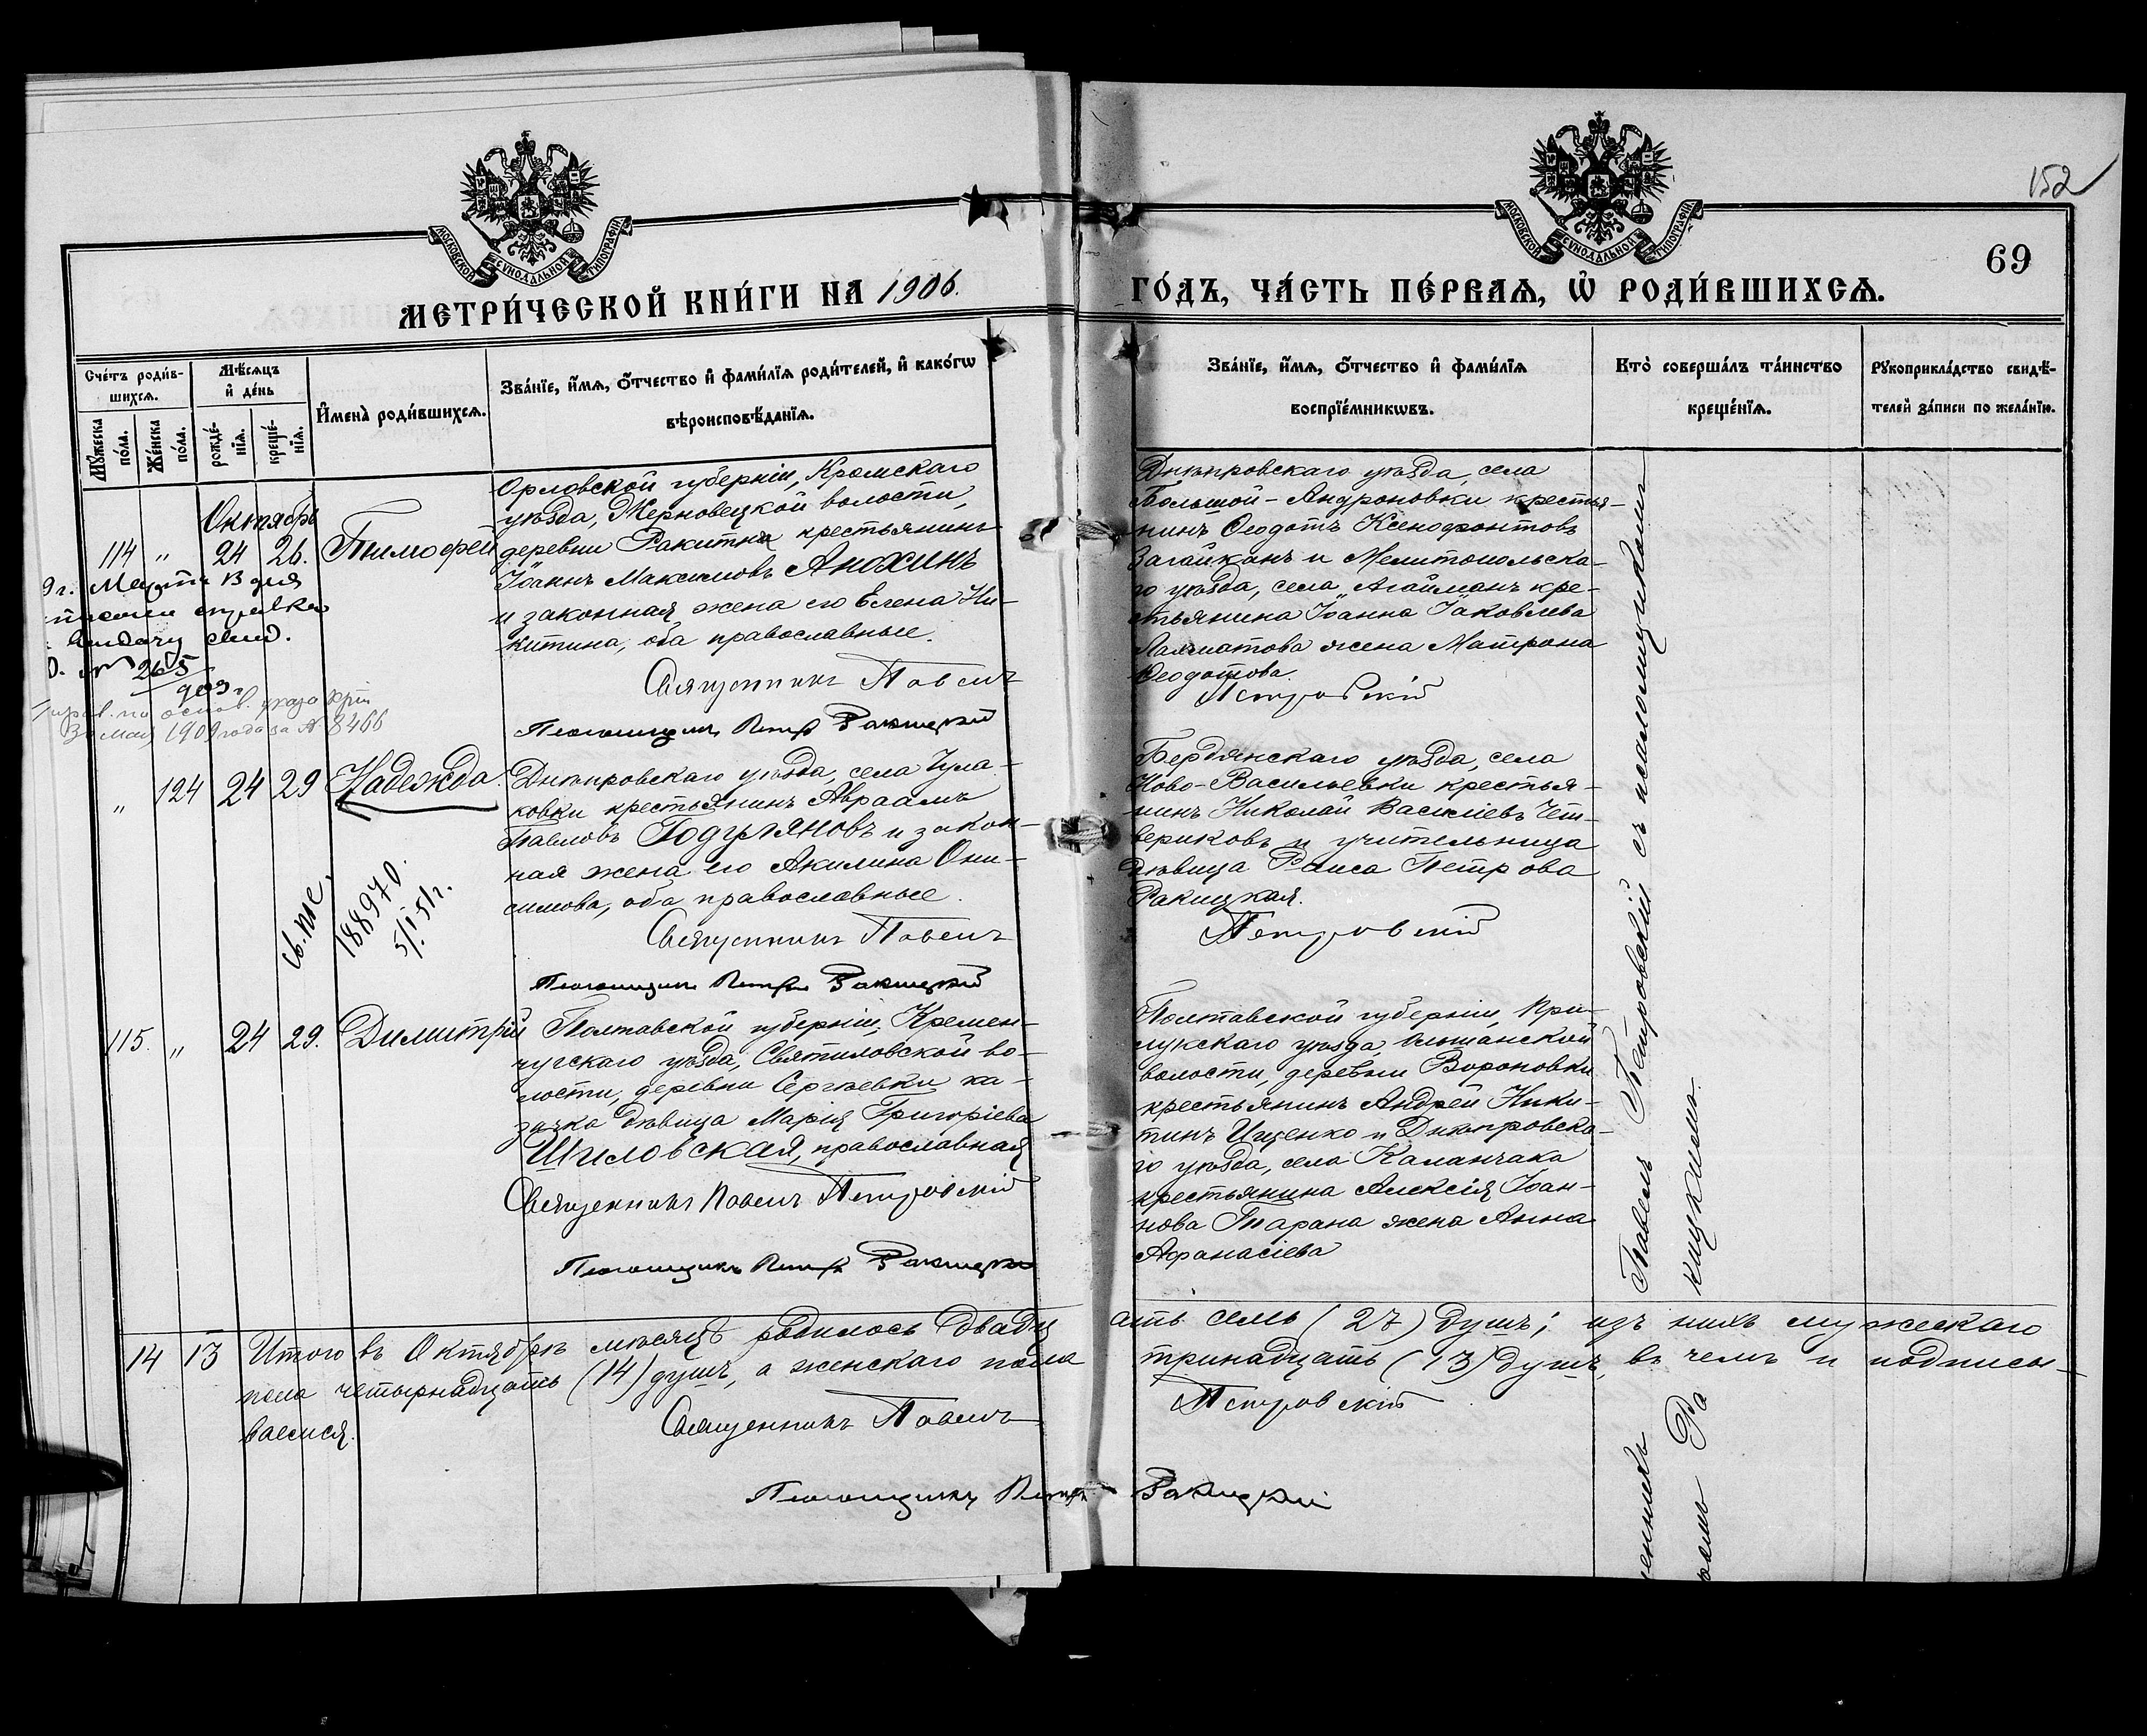 152
69
МОСКОВСКОЙ СѴНОДАЛЬНОЙ ТИПОГРАФІИ
МОСКОВСКОЙ СѴНОДАЛЬНОЙ ТИПОГРАФІИ
МЕТРИ́ЧЕСКОЙ КНИ́ГИ НА 1906.
ГО́ДЪ, ЧА́СТЬ ПЕ́РВАѦ, Ѡ҆ РОДИ́ВШИХСѦ.
Сче́тъ роди́в-
шихсѧ.
Мѹ́жеска
по́ла.
Же́нска
по́ла.
Мѣ́сѧцъ
и҆ де́нь
рожде́-
нїѧ.
креще́-
нїѧ.
И҆мена̀ роди́вшихсѧ.
Зва́нїе, и҆́мѧ, ѻ҆́тчество и҆ фами́лїѧ роди́телей, и҆ како́гѡ
вѣроисповѣ́данїѧ.
Зва́нїе, и҆́мѧ, ѻ҆́тчество и҆ фами́лїѧ
воспрїе́мникѡвъ.
Кто̀ соверша́лъ та́инство
креще́нїѧ.
Рѹкоприкла́дство свидѣ́-
телей за́писи по жела́нїю.
Октябрь
114 " 24 26. Тимофей
Орловской губерніи, Кромскаго
уѣзда, Жерновецкой волости,
деревни Ракитна крестьянинъ
Іоаннъ Максимовъ Анохинъ
и законная жена его Елена Ни-
китина, оба православные.
Священникъ Павелъ
Петровскій
Псаломщикъ Петръ Ракицкій
Днѣпровскаго уѣзда, села
Большой-Андроновки крестья-
нинъ Ѳеодотъ Ксенофонтовъ
Загайканъ и Мелитопольска-
го уѣзда, села Агайманъ кре-
стьянина Іоанна Іаковлева
жена Матрона
Ѳеодотова.
9 г. Марта 13 дня
справка
выдачу свид.
№ 265
909 г.
30 мая 1909 года за № 8466
" 124 24 29 Надежда.
Днѣпровскаго уѣзда, села Чула-
ковки крестьянинъ Авраамъ
Павловъ Годуляновъ и закон-
ная жена его Акилина Они-
симова, оба православные.
Священникъ Павелъ
Петровскій
Псаломщикъ Петръ Ракицкій
Бердянскаго уѣзда, села
Ново-Васильевки крестья-
нинъ Николай Василіевъ Чет-
вериковъ и учительница
дѣвица Раиса Петрова
Ракицкая.
188970.
5/I 51 г.
115. " 24 29. Димитрій
Полтавской губерніи, Кремен-
чугскаго уѣзда, Святиловской во-
лости, деревни Сергѣевки ка-
зачка дѣвица Марія Григоріева
Шиловская, православная
Священникъ Павелъ Петровскій
Псаломщикъ Петръ Ракицкій
Полтавской губерніи, При-
лукскаго уѣзда, Ольшанской
волости, деревни Вороновки
крестьянинъ Андрей Ники-
тинъ Ищенко и Днѣпровска-
го уѣзда, села Каланчака
крестьянина Алексія Іоан-
нова Тарана жена Анна
Афанасіева
енникъ Павелъ Петровскій съ псаломщикомъ
Ракицкимъ.
14 13 Итого въ Октябрѣ мѣсяцѣ родилось двадцать семь (27) душъ; изъ нихъ мужескаго
пола четырнадцать (14) душъ, а женскаго пола тринадцать (13) душъ, въ чемъ и подписы-
ваемся.
Священникъ Павелъ Петровскій
Псаломщикъ Петръ Ракицкій